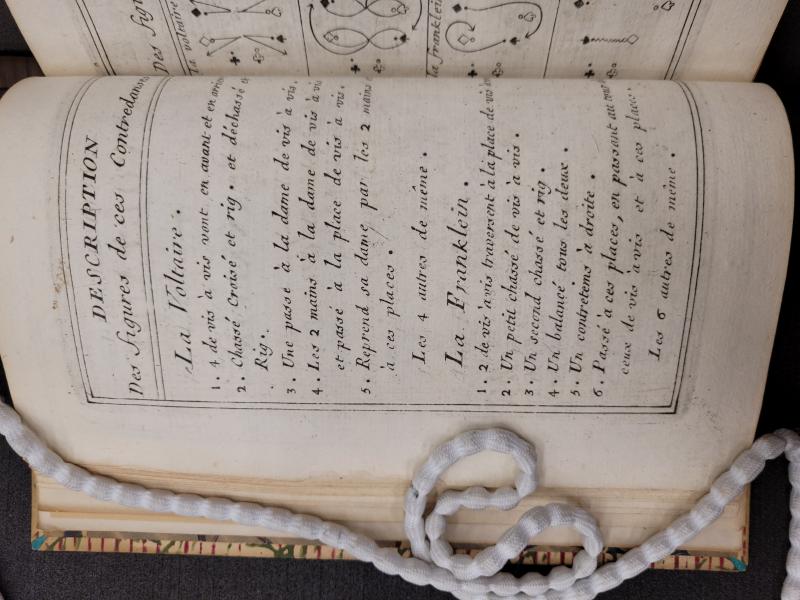 DESCRIPTION
Des figures de ces Contredanses
La Voltaire.
1. 4 de vis à vis vont en avant et en arrière
2. Chassé Croisé et rig. et déchassé et
Rig.
3. Une passé à la dame de vis à vis.
4. Les 2 mains à la dame de vis à vis
et passé à la place de vis à vis.
5. Reprend sa dame par les 2 mains
à ces places.
Les 4 autres de même.
La Franklein.
1. 2 de vis à vis traversent à la place de vis
2. Un petit chassé de vis a vis.
3. Un second chassé et rig.
4. Un balancé tous les deux.
5. Un contretems à droite.
6. Passé à ces places, en passant au tour
ceux de vis à vis et à ces places.
Les 6 autres de même.
Des fig
la voltaire
la franklein